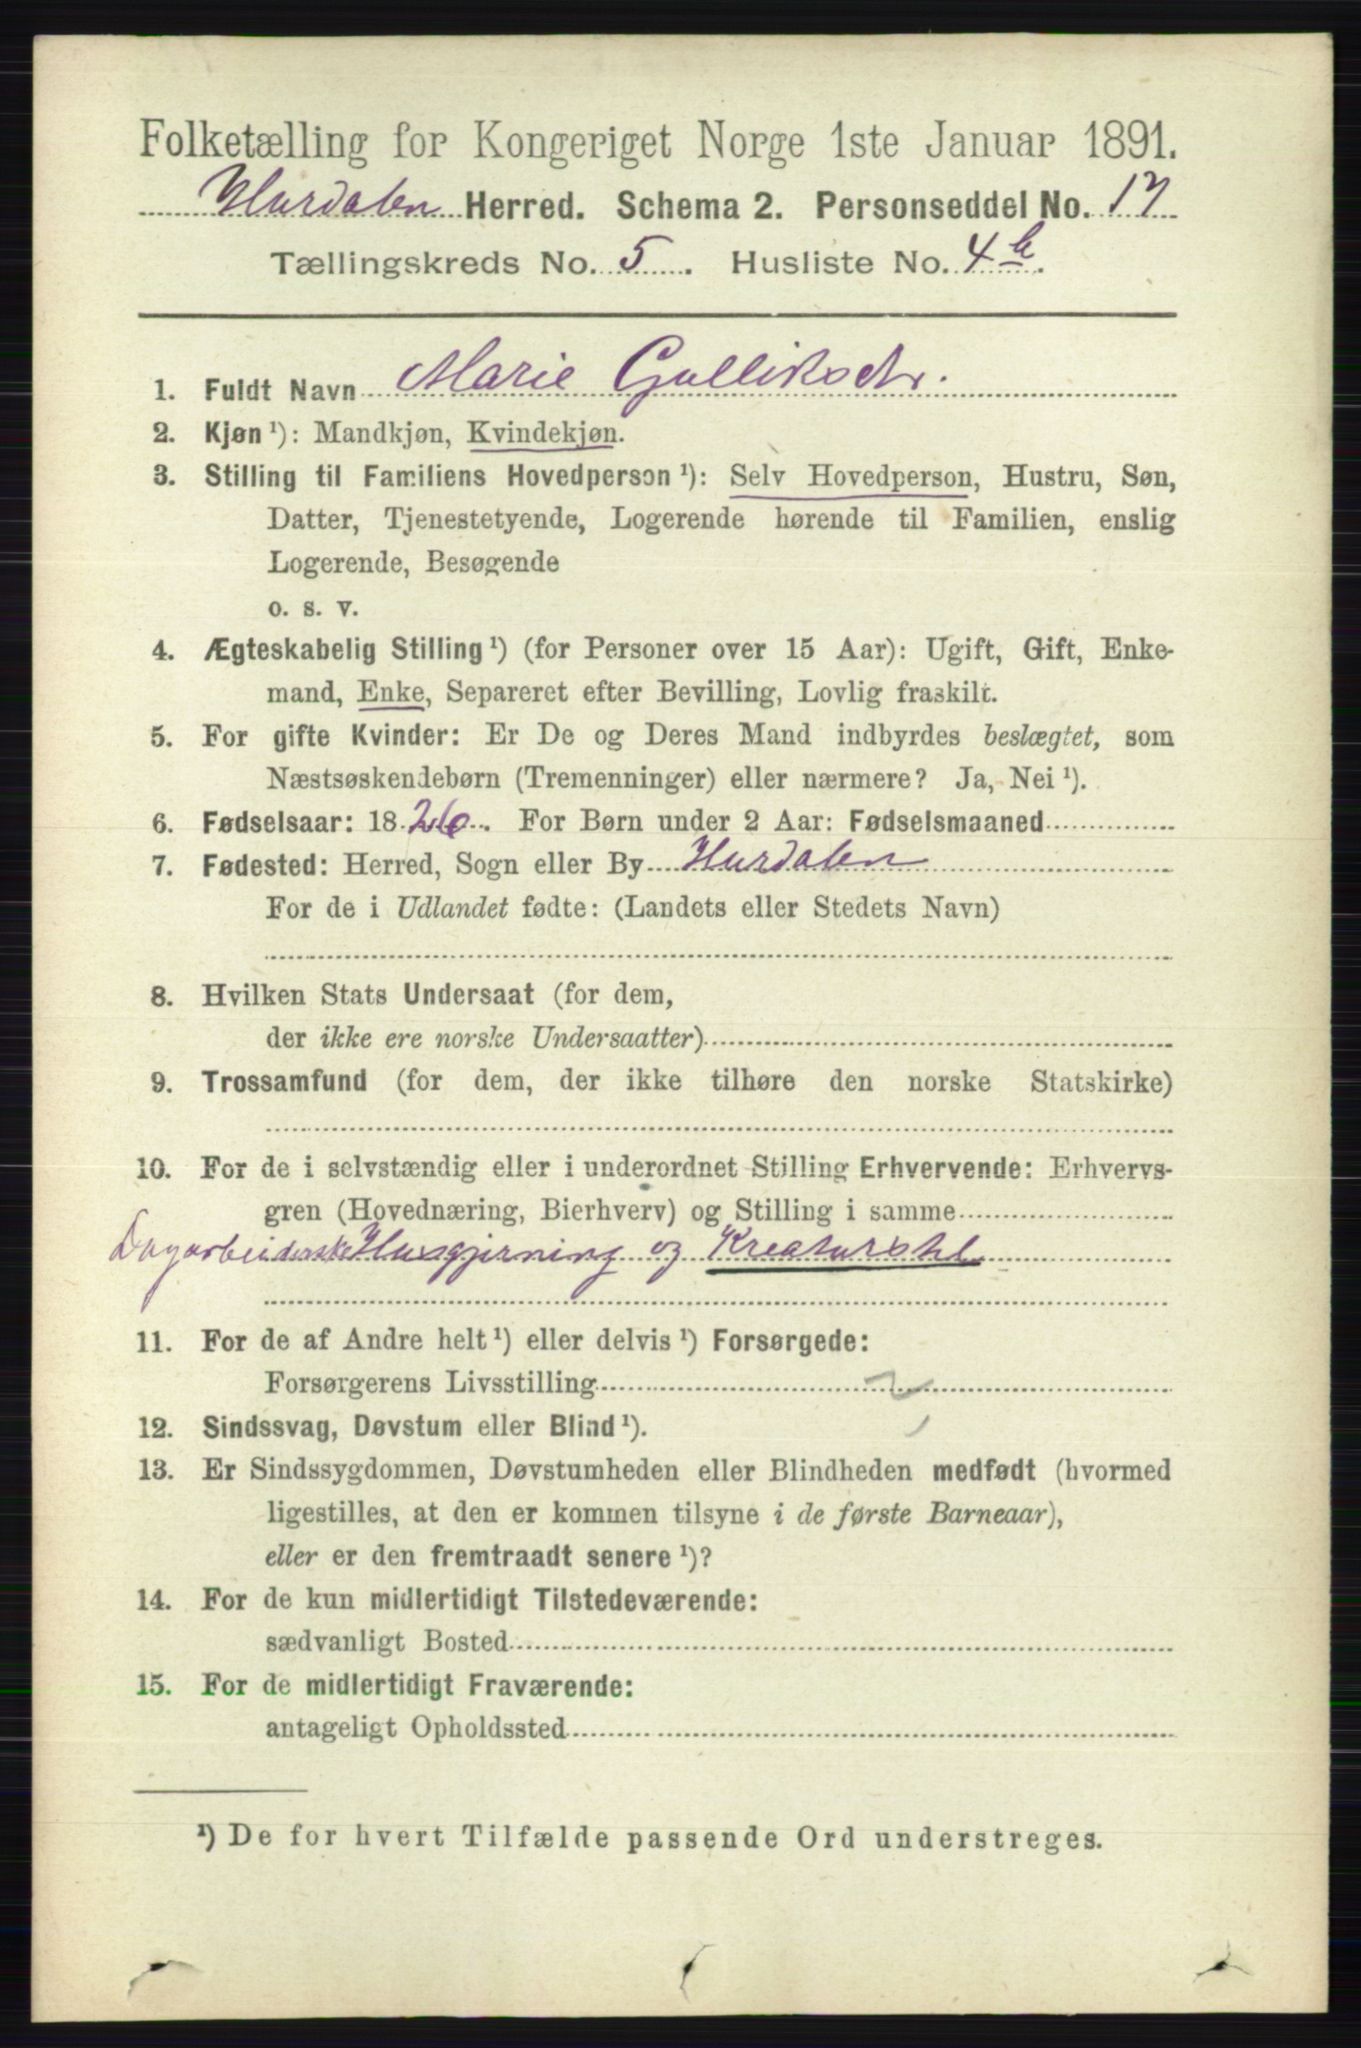 Folketælling for Kongeriget Norge 1ste Januar 1891.
Hurdalen Herred. Schema 2. Personseddel No. 17
Tællingskreds No. 5. Husliste No. 4b.
1. Fuldt Navn Marie Galliksdtr.
2. Kjøn ¹): Mandkjøn, Kvindekjøn.
3. Stilling til Familiens Hovedperson ¹): Selv Hovedperson, Hustru, Søn,
Datter, Tjenestetyende, Logerende hørende til Familien, enslig
Logerende, Besøgende
o. s. v.
4. Ægteskabelig Stilling ¹) (for Personer over 15 Aar): Ugift, Gift, Enke-
mand, Enke, Separeret efter Bevilling, Lovlig fraskilt.
5. For gifte Kvinder: Er De og Deres Mand indbyrdes beslægtet, som
Næstsøskendebørn (Tremenninger) eller nærmere? Ja, Nei ¹).
6. Fødselsaar: 1826. For Børn under 2 Aar: Fødselsmaaned
7. Fødested: Herred, Sogn eller By Hurdalen
For de i Udlandet fødte: (Landets eller Stedets Navn)
8. Hvilken Stats Undersaat (for dem,
der ikke ere norske Undersaatter)
9. Trossamfund (for dem, der ikke tilhøre den norske Statskirke)
10. For de i selvstændig eller i underordnet Stilling Erhvervende: Erhvervs-
gren (Hovednæring, Bierhverv) og Stilling i samme
Dagarbeiderske Husgjerning og Kreaturstel
11. For de af Andre helt ¹) eller delvis ¹) Forsørgede:
Forsørgerens Livsstilling
12. Sindssvag, Døvstum eller Blind ¹).
13. Er Sindssygdommen, Døvstumheden eller Blindheden medfødt (hvormed
ligestilles, at den er kommen tilsyne i de første Barneaar),
eller er den fremtraadt senere ¹)?
14. For de kun midlertidigt Tilstedeværende:
sædvanligt Bosted
15. For de midlertidigt Fraværende:
antageligt Opholdssted
¹) De for hvert Tilfælde passende Ord understreges.